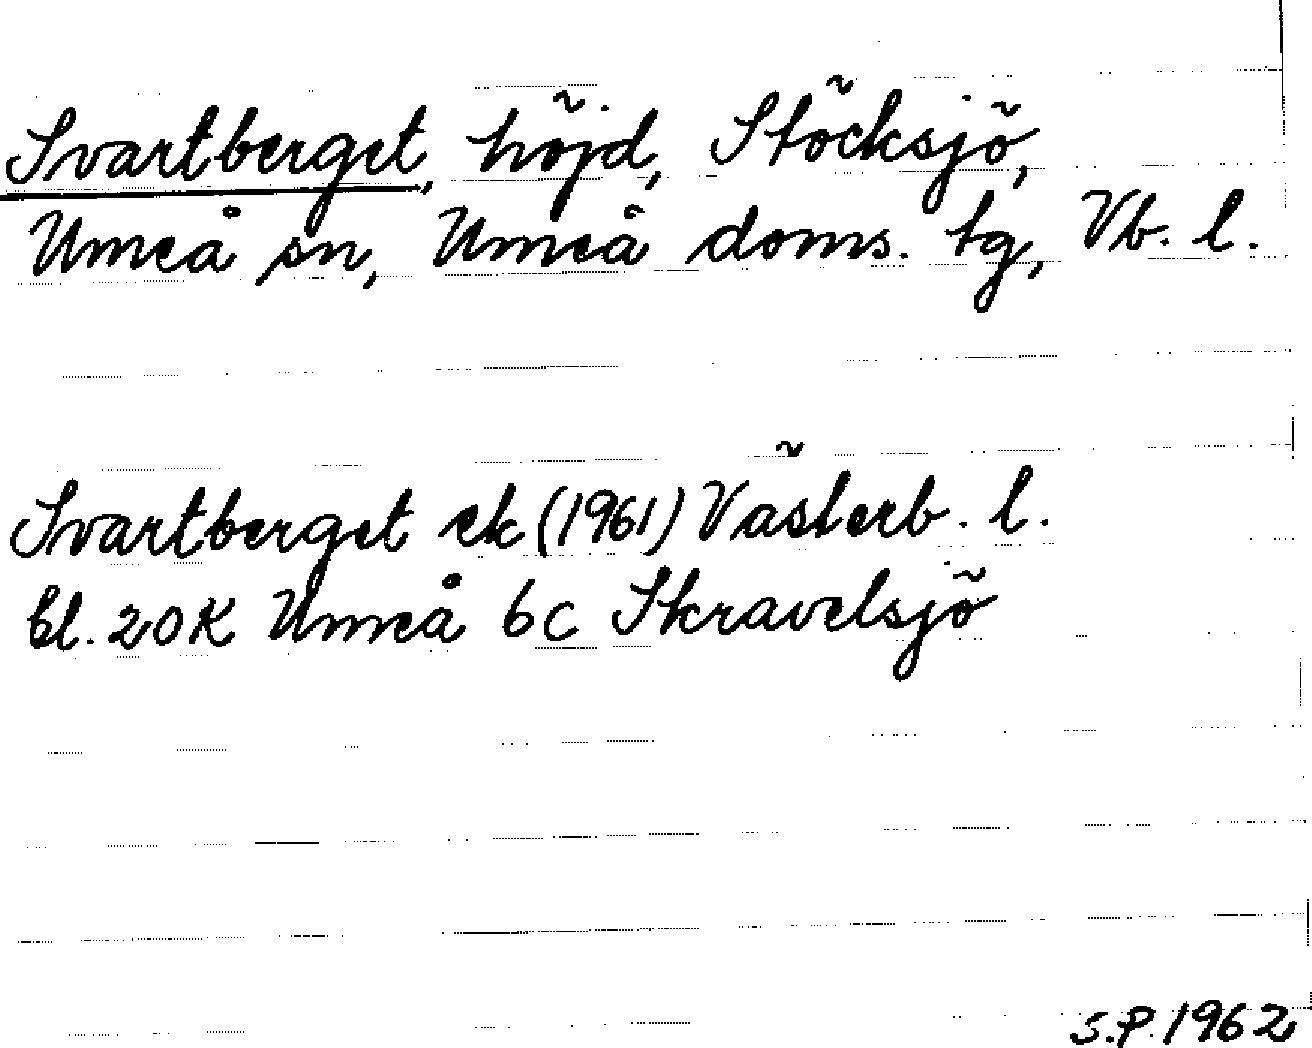 Svartberget, höjd, Stöcksjö,
Umeå sn, Umeå doms. tg, Vb. l.
Svartberget ek (1961) Västerb. l.
bl. 20K Umeå 6c Skravelsjö
S.P. 1962